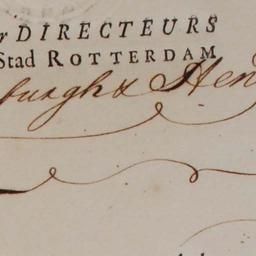 r DIRECTEURS
Stad ROTTERDAM
burgh & Hen